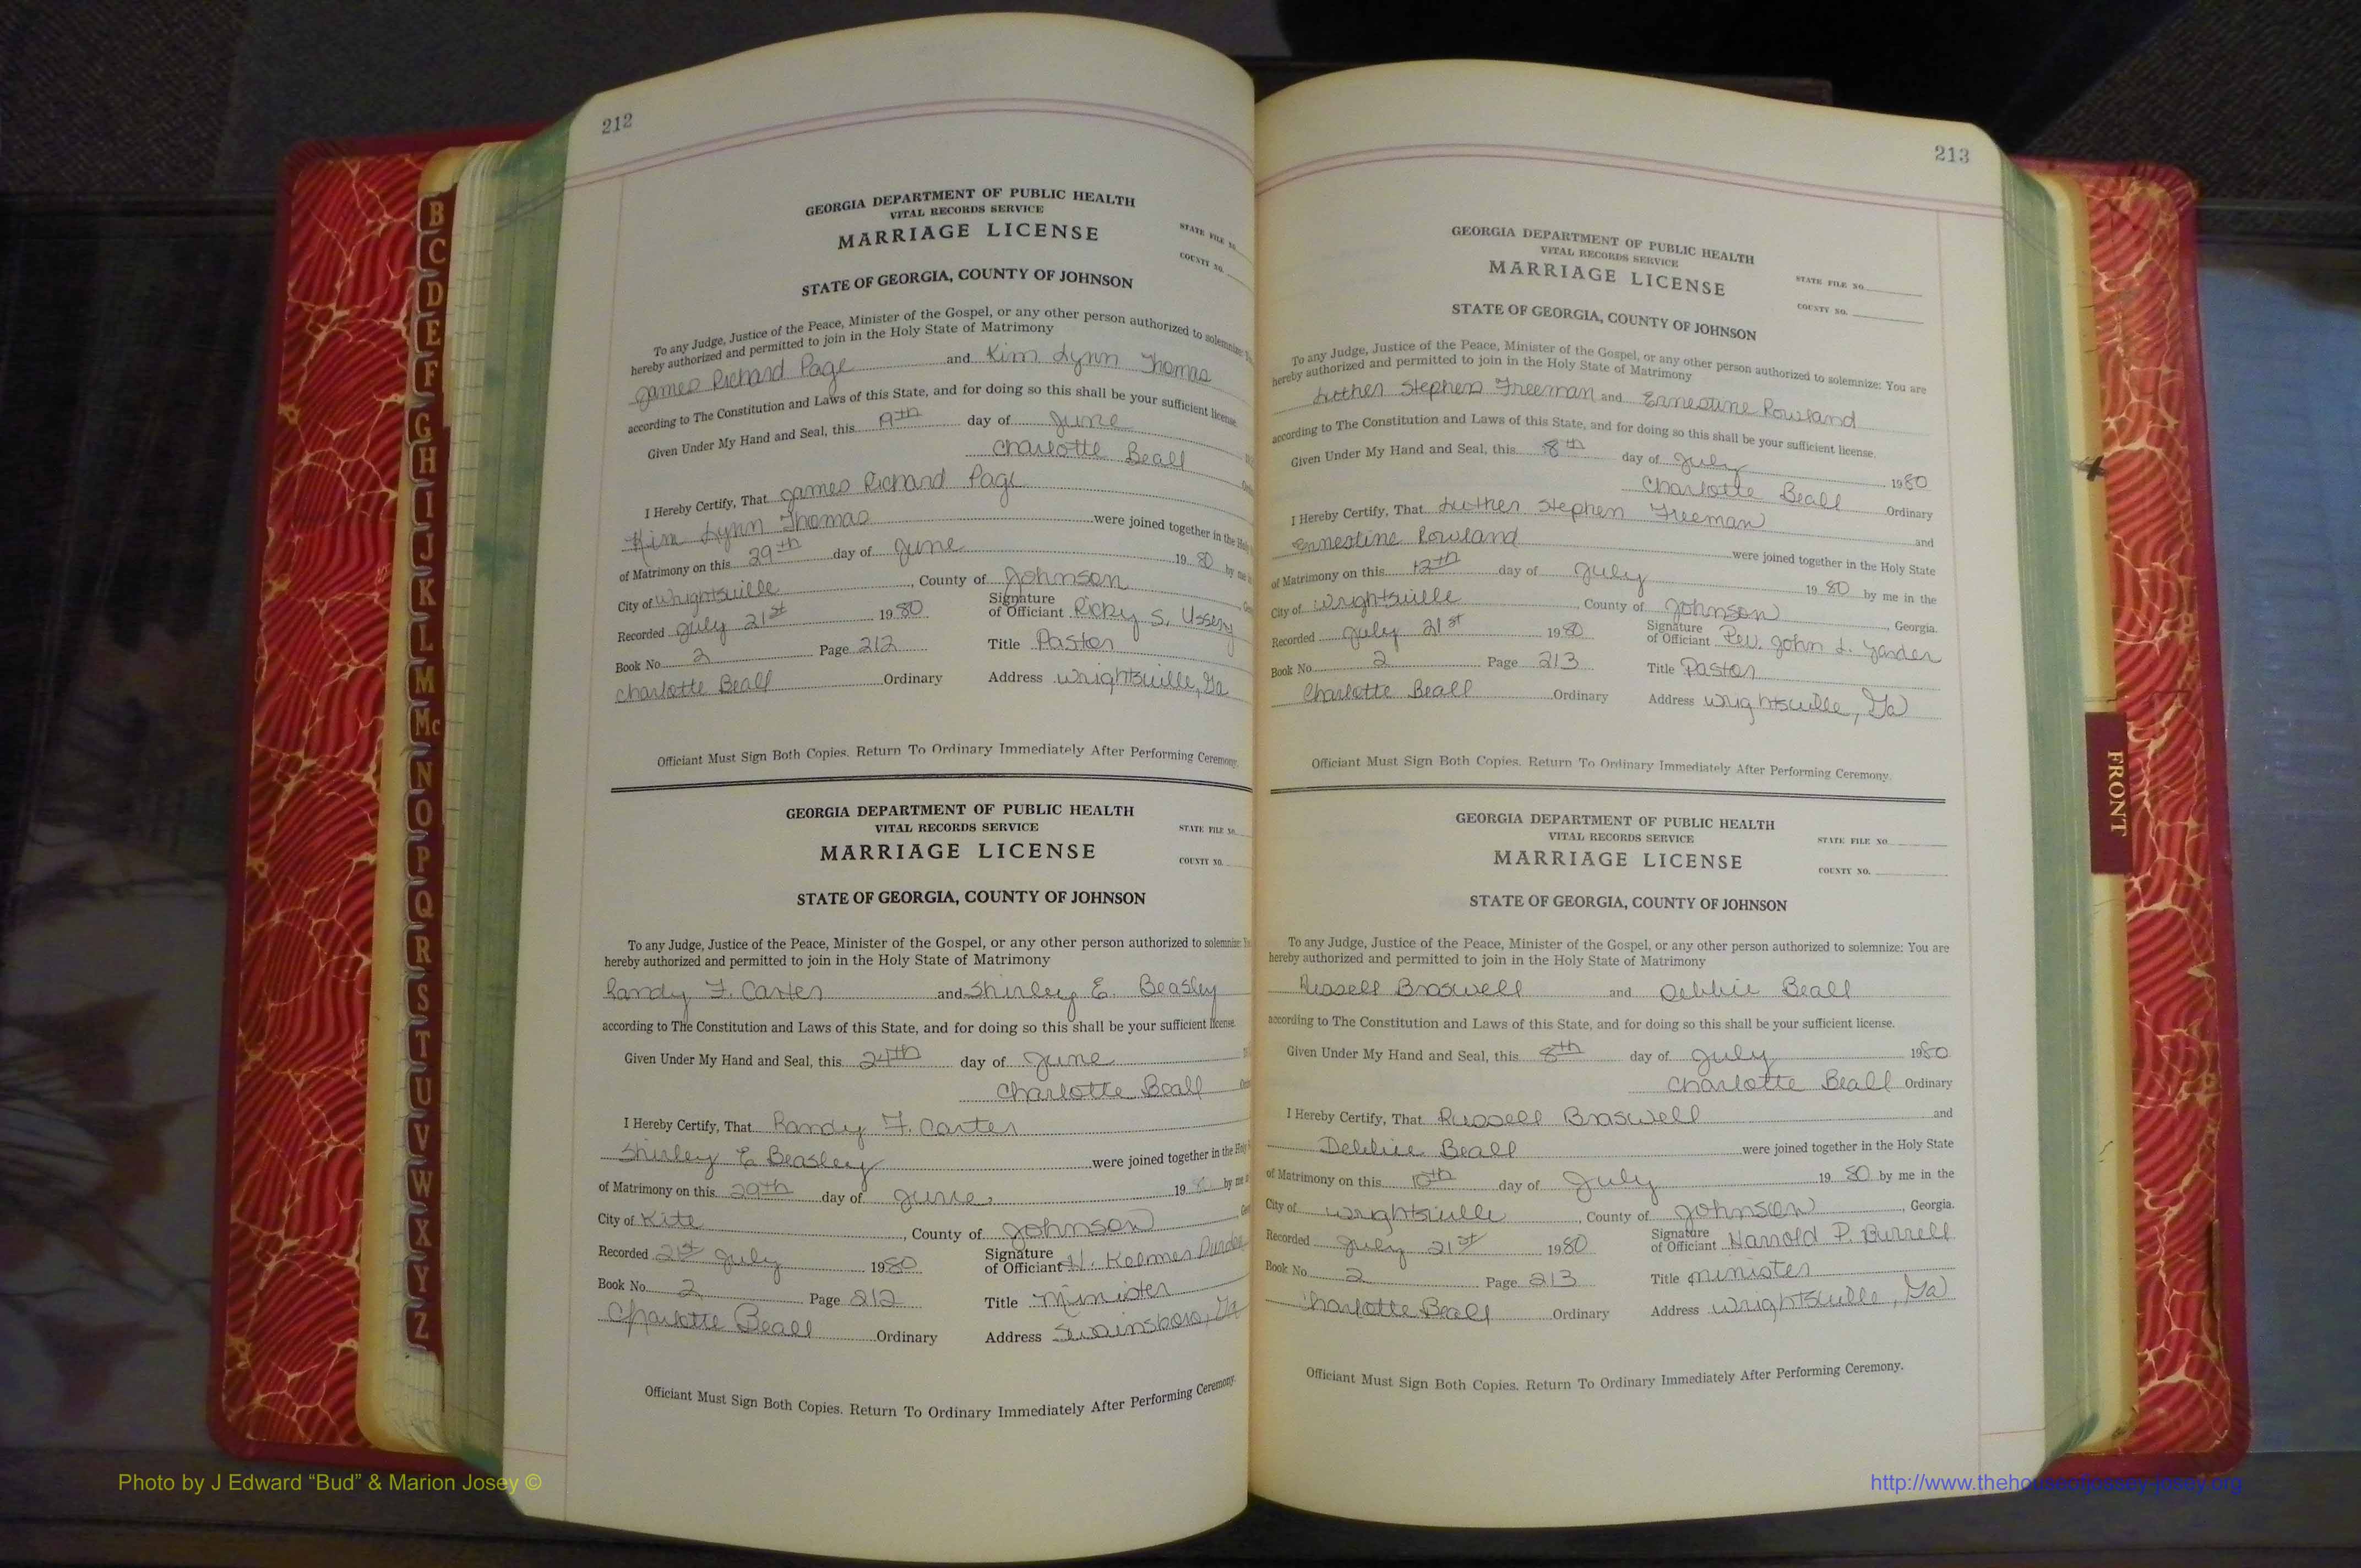 212
GEORGIA DEPARTMENT OF PUBLIC HEALTH
VITAL RECORDS SERVICE
MARRIAGE LICENSE
STATE FILE NO.
COUNTY NO.
STATE OF GEORGIA, COUNTY OF JOHNSON
To any Judge, Justice of the Peace, Minister of the Gospel, or any other person authorized to solemnize:
hereby authorized and permitted to join in the Holy State of Matrimony
James Richard Page and Kim Lynn Thomas
according to The Constitution and Laws of this State, and for doing so this shall be your sufficient license.
Given Under My Hand and Seal, this 19th day of June
Charlotte Beall
I Hereby Certify, That James Richard Page
Kim Lynn Thomas were joined together in the Holy
of Matrimony on this 29th day of June 1980 by me in
City of Wrightsville, County of Johnson
Recorded July 21st 1980 Signature of Officiant Ricky S. Ussery
Book No. 2 Page 212 Title Pastor
Charlotte Beall Ordinary Address Wrightsville, Ga
Officiant Must Sign Both Copies. Return To Ordinary Immediately After Performing Ceremony.
GEORGIA DEPARTMENT OF PUBLIC HEALTH
VITAL RECORDS SERVICE
MARRIAGE LICENSE
STATE FILE NO.
COUNTY NO.
STATE OF GEORGIA, COUNTY OF JOHNSON
To any Judge, Justice of the Peace, Minister of the Gospel, or any other person authorized to solemnize:
hereby authorized and permitted to join in the Holy State of Matrimony
Randy F. Carter and Shirley E. Beasley
according to The Constitution and Laws of this State, and for doing so this shall be your sufficient license
Given Under My Hand and Seal, this 24th day of June
Charlotte Beall
I Hereby Certify, That Randy F. Carter
Shirley E. Beasley were joined together in the Holy
of Matrimony on this 29th day of June, 198 by me
City of Kite, County of Johnson
Recorded 21st July 1980 Signature of Officiant
Book No. 2 Page 212 Title Minister
Charlotte Beall Ordinary Address Swainsboro, Ga
Officiant Must Sign Both Copies. Return To Ordinary Immediately After Performing Ceremony.
213
GEORGIA DEPARTMENT OF PUBLIC HEALTH
VITAL RECORDS SERVICE
MARRIAGE LICENSE
STATE FILE NO.
COUNTY NO.
STATE OF GEORGIA, COUNTY OF JOHNSON
To any Judge, Justice of the Peace, Minister of the Gospel, or any other person authorized to solemnize: You are
hereby authorized and permitted to join in the Holy State of Matrimony
Luther Stephen Freeman and Ernestine Rowland
according to The Constitution and Laws of this State, and for doing so this shall be your sufficient license.
Given Under My Hand and Seal, this 8th day of July 1980
Charlotte Beall Ordinary
I Hereby Certify, That Luther Stephen Freeman and
Ernestine Rowland were joined together in the Holy State
of Matrimony on this 12th day of July 1980 by me in the
City of Wrightsville, County of Johnson, Georgia.
Recorded July 21st 1980 Signature of Officiant Rev. John L.
Book No. 2 Page 213 Title Pastor
Charlotte Beall Ordinary Address Wrightsville, Ga
Officiant Must Sign Both Copies. Return To Ordinary Immediately After Performing Ceremony.
GEORGIA DEPARTMENT OF PUBLIC HEALTH
VITAL RECORDS SERVICE
MARRIAGE LICENSE
STATE FILE NO.
COUNTY NO.
STATE OF GEORGIA, COUNTY OF JOHNSON
To any Judge, Justice of the Peace, Minister of the Gospel, or any other person authorized to solemnize: You are
hereby authorized and permitted to join in the Holy State of Matrimony
Russell Braswell and Debbie Beall
according to The Constitution and Laws of this State, and for doing so this shall be your sufficient license.
Given Under My Hand and Seal, this 8th day of July 1980
Charlotte Beall Ordinary
I Hereby Certify, That Russell Braswell and
Debbie Beall were joined together in the Holy State
of Matrimony on this 10th day of July 1980 by me in the
City of Wrightsville, County of Johnson, Georgia.
Recorded July 21st 1980 Signature of Officiant Harrold P. Burrell
Book No. 2 Page 213 Title minister
Charlotte Beall Ordinary Address Wrightsville, Ga
Officiant Must Sign Both Copies. Return To Ordinary Immediately After Performing Ceremony.
B
C
D
E
F
G
H
I
J
K
L
M
Mc
N
O
P
Q
R
S
T
U
V
W
X
Y
Z
FRONT
Photo by J Edward “Bud” & Marion Josey ©
http://www.thehouseofjossey-josey.org